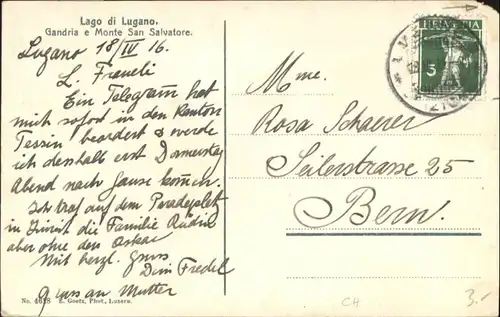 Lago di Lugano.
Gandria e Monte San Salvatore.
Lugano 18/IV 16.
L. Franeli
Ein Telegram hat
mich sofort in den Kanton
Tessin beordert & werde
ich deshalb erst Donnerstag
Abend nach Hause kommen.
Ich traf auf dem Paradeplatz
in Zürich die Familie Rüdin
aber ohne den Oskar
Mit herzl. Gruss
Dein Fredel
Gruss an Mutter
No. 4618 E. Goetz, Phot., Luzern.
HELVETIA
5
Mme.
Rosa Schaerer
Seilerstrasse 25
Bern.
CH
3.-